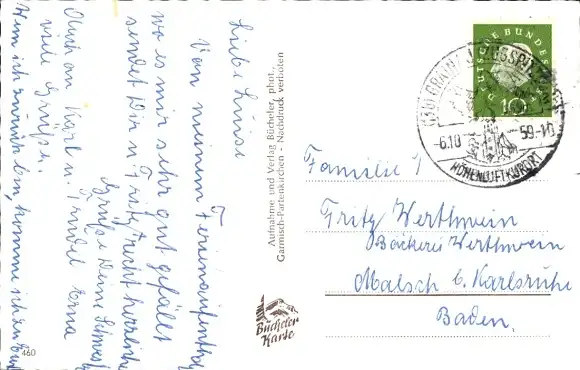 Liebe Luise
Von meinem Ferienaufenthalt
wo es mir sehr gut gefällt
sendet Dir u Fritz recht herzliche
Grüße Deine Schwester
Auch an Karl u. Trudel Erna
viele Grüße.
Wenn ich zurück bin, komme
Aufnahme und Verlag Bücheler, phot.,
Garmisch-Partenkirchen - Nachdruck verboten
Bücheler
Karte
460
DEUTSCHE BUNDESPOST
10
-6.10
59-10
HÖHENLUFTKURORT
Familie
Fritz Werthwein
Bäckerei Werthwein
Malsch b. Karlsruhe
Baden.